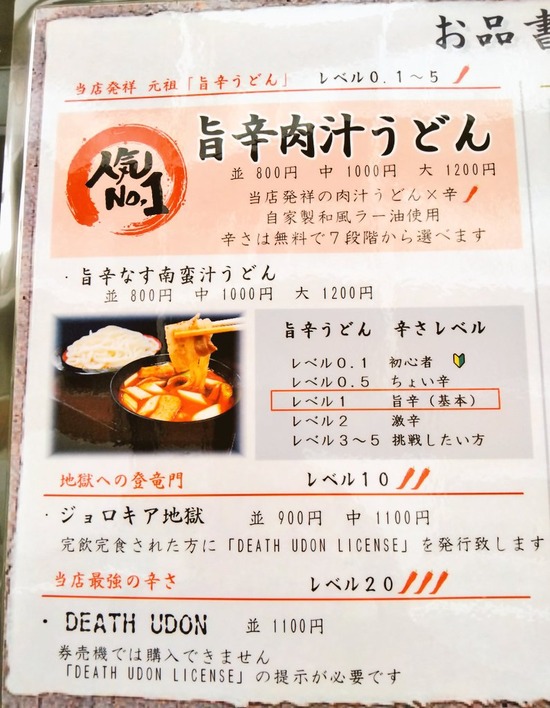 お品書
当店発祥 元祖「旨辛うどん」 レベル0.1～5
人気
No.1
旨辛肉汁うどん
並 800円 中 1000円 大 1200円
当店発祥の肉汁うどん×辛
自家製和風ラー油使用
辛さは無料で7段階から選べます
・旨辛なす南蛮汁うどん
並 800円 中 1000円 大 1200円
旨辛うどん 辛さレベル
レベル0.1 初心者
レベル0.5 ちょい辛
レベル1 旨辛（基本）
レベル2 激辛
レベル3～5 挑戦したい方
地獄への登竜門 レベル10
・ジョロキア地獄 並 900円 中 1100円
完飲完食された方に「DEATH UDON LICENSE」を発行致します
当店最強の辛さ レベル20
・DEATH UDON 並 1100円
券売機では購入できません
「DEATH UDON LICENSE」の提示が必要です